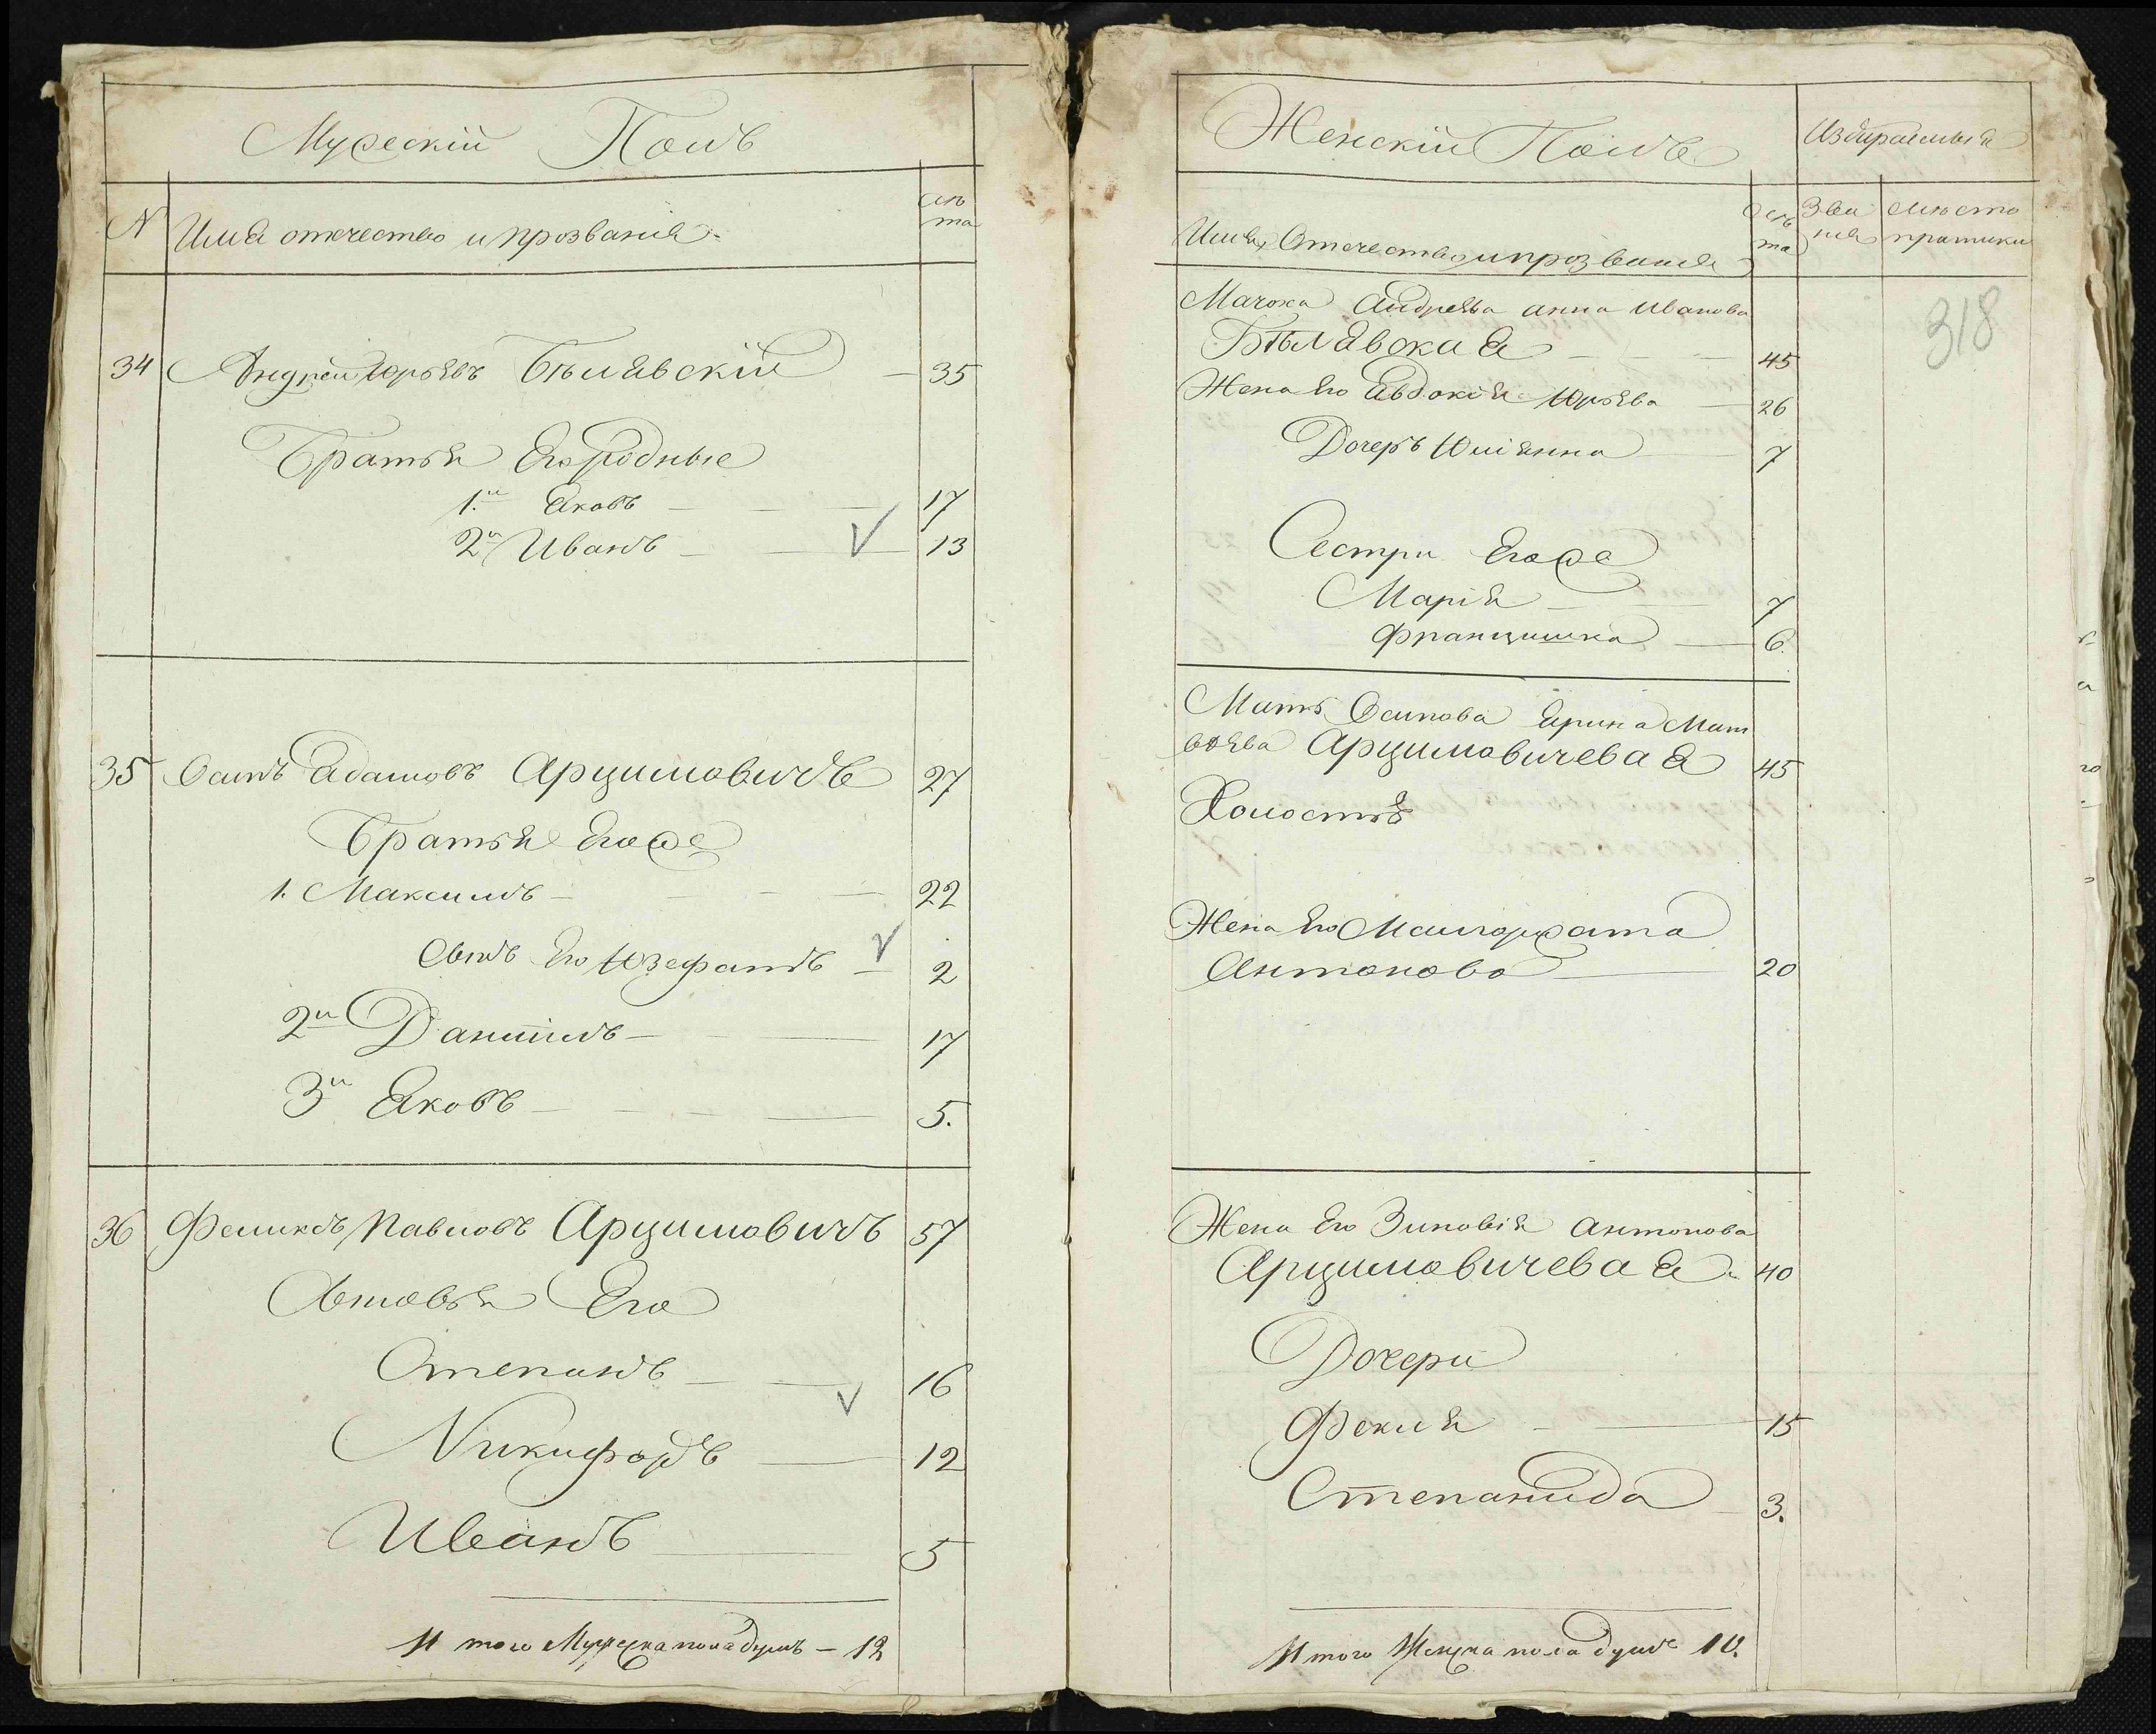 Мужескій Полъ
№ Имя отчество и прозвание
лѣ
та
34 Андрей Юрьевъ Бѣлявскій — 35
Братья Его родные
1й Яковъ — — — 17
2й Иванъ — — V — 13
35 Осипъ Адамовъ Арцимовичъ 27
Братья Егоже
1. Максимъ — — — — 22
Сынъ Его Юзефатъ V — 2
2й Даніилъ — — — 17
3й Яковъ — — — — 5.
36 Феликсъ Павловъ Арцимовичъ 57
Сыновья Его
Степанъ — — 16
V
Никифоръ — 12
Иванъ — 5
И того Мужеска пола душъ — 12
Женскій Полъ
Избираемыя
Имя, Отчество и прозвание
лѣ
та
Зва
ния
мѣсто
318
Мачоха Андреява анна Иванова
Бѣлявская — — — 45
Жена Его Евдокія Юрьява — 26
Дочеръ Юліянна — 7
Сестри Егоже
Марія — — 7
Францишка — 6.
Мать Осипова Ярина Мат
вѣява Арцимовичевая 45
Холостъ
Жена Его Малгоржата
Антонова — 20
Жена Его Зиновія антонова
Арцимовичевая 40
Дочери
Фекля — — 15
Степанида — 3.
И того Женска пола душъ 10.